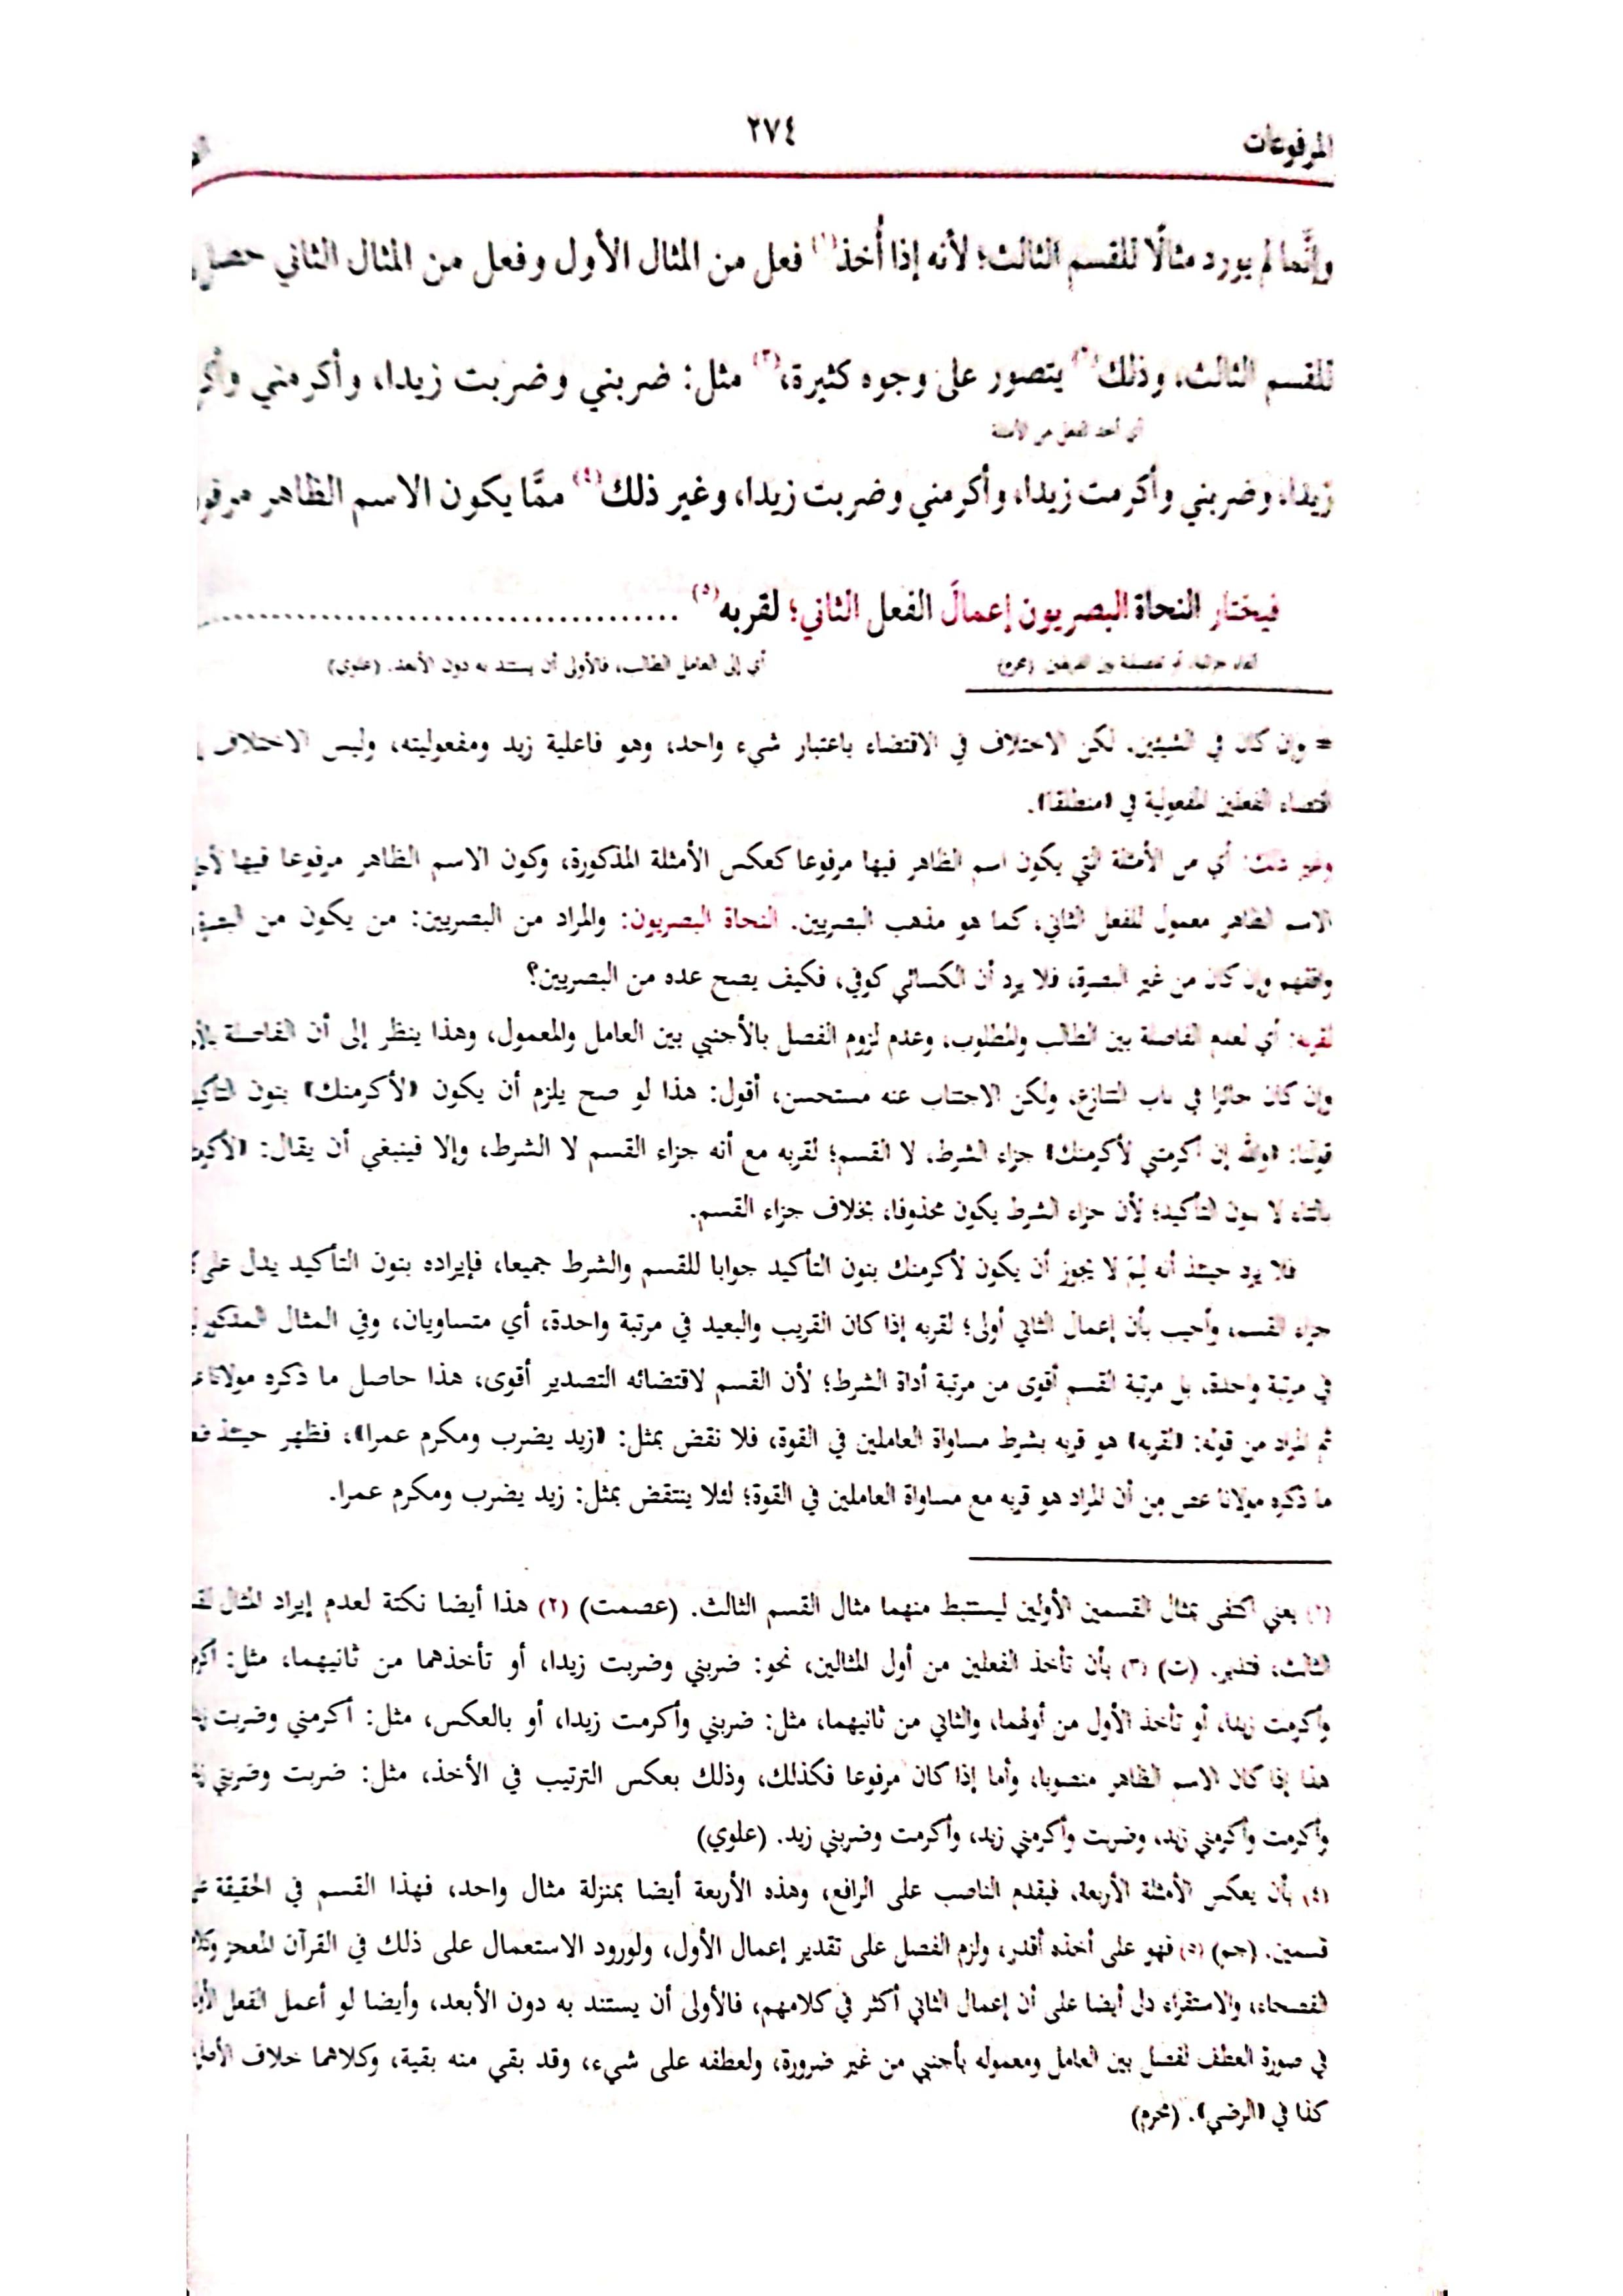 المرفوعات ٢٧٤
وإنَّما لم يورد مثالًا للقسم الثالث؛ لأنه إذا أُخذ(١) فعل من المثال الأول وفعل من المثال الثاني حصل
للقسم الثالث، وذلك(٢) يتصور على وجوه كثيرة،(٣) مثل: ضربني وضربت زيدا، وأكرمني
أي أخذ الفعل من الأمثلة
زيدا، وضربني وأكرمت زيدا، وأكرمني وضربت زيدا، وغير ذلك(٤) ممَّا يكون الاسم الظاهر
فيختار النحاة البصريون إعمالَ الفعل الثاني؛ لقربه(٥) ........................................
(محرم) أي إلى العامل الطالب، فالأولى أن يستند به دون الأبعد. (علوي)
= وإن كان في الشيئين. لكن الاختلاف في الاقتضاء باعتبار شيء واحد، وهو فاعلية زيد ومفعوليته، وليس الاختلاف
اقتضاء الفعلين المفعولية في «منطلقا».
وغير ذلك: أي من الأمثلة التي يكون اسم الظاهر فيها مرفوعا كعكس الأمثلة المذكورة، وكون الاسم الظاهر مرفوعا فيها
الاسم الظاهر معمول للفعل الثاني، كما هو مذهب البصريين. النحاة البصريون: والمراد من البصريين: من يكون من
وافقهم وإن كان من غير البصرة، فلا يرد أن الكسائي كوفي، فكيف يصح عده من البصريين؟
لقربه: أي لعدم الفاصلة بين الطالب والمطلوب، وعدم لزوم الفصل بالأجنبي بين العامل والمعمول، وهذا ينظر إلى أن الفاصلة
وإن كان جائزا في باب التنازع، ولكن الاجتناب عنه مستحسن، أقول: هذا لو صح يلزم أن يكون «لأكرمنك» بنون
قولنا: «والله إن أكرمتني لأكرمنك» جزاء الشرط، لا القسم؛ لقربه مع أنه جزاء القسم لا الشرط، وإلا فينبغي أن يقال:
لا بنون التأكيد؛ لأن جزاء الشرط يكون محذوفا، بخلاف جزاء القسم.
فلا يرد حينئذ أنه لِمَ لا يجوز أن يكون لأكرمنك بنون التأكيد جوابا للقسم والشرط جميعا، فإيراده بنون التأكيد يدل على
جزاء القسم، وأجيب بأن إعمال الثاني أولى؛ لقربه إذا كان القريب والبعيد في مرتبة واحدة، أي متساويان، وفي المثال المذكور
في مرتبة واحدة، بل مرتبة القسم أقوى من مرتبة أداة الشرط؛ لأن القسم لاقتضائه التصدير أقوى، هذا حاصل ما ذكره مولانا
ثم المراد من قوله: «لقربه» هو قربه بشرط مساواة العاملين في القوة، فلا نقض بمثل: «زيد يضرب ومكرم عمرا»، فظهر حينئذ
ما ذكره مولانا من أن المراد هو قربه مع مساواة العاملين في القوة؛ لئلا ينتقض بمثل: زيد يضرب ومكرم عمرا.
(١) يعني اكتفى بمثال القسمين الأولين ليستنبط منهما مثال القسم الثالث. (عصمت) (٢) هذا أيضا نكتة لعدم إيراد المثال
الثالث، فتدبر. (ت) (٣) بأن تأخذ الفعلين من أول المثالين، نحو: ضربني وضربت زيدا، أو تأخذهما من ثانيهما، مثل:
وأكرمت زيدا، أو تأخذ الأول من أولهما، والثاني من ثانيهما، مثل: ضربني وأكرمت زيدا، أو بالعكس، مثل: أكرمني وضربت
هذا إذا كان الاسم الظاهر منصوبا، وأما إذا كان مرفوعا فكذلك، وذلك بعكس الترتيب في الأخذ، مثل: ضربت وضربني
وأكرمت وأكرمني زيد، وضربت وأكرمني زيد، وأكرمت وضربني زيد. (علوي)
(٤) بأن يعكس الأمثلة الأربعة، فيقدم الناصب على الرافع، وهذه الأربعة أيضا بمنزلة مثال واحد، فهذا القسم في الحقيقة
قسمين. (جم) (٥) فهو على أخذه أقدر، ولزم الفصل على تقدير إعمال الأول، ولورود الاستعمال على ذلك في القرآن المعجز
الفصحاء، والاستقراء دل أيضا على أن إعمال الثاني أكثر في كلامهم، فالأولى أن يستند به دون الأبعد، وأيضا لو أعمل الفعل
في صورة العطف لفصل بين العامل ومعموله بأجنبي من غير ضرورة، ولعطفه على شيء، وقد بقي منه بقية، وكلاهما خلاف
كذا في «الرضي». (محرم)